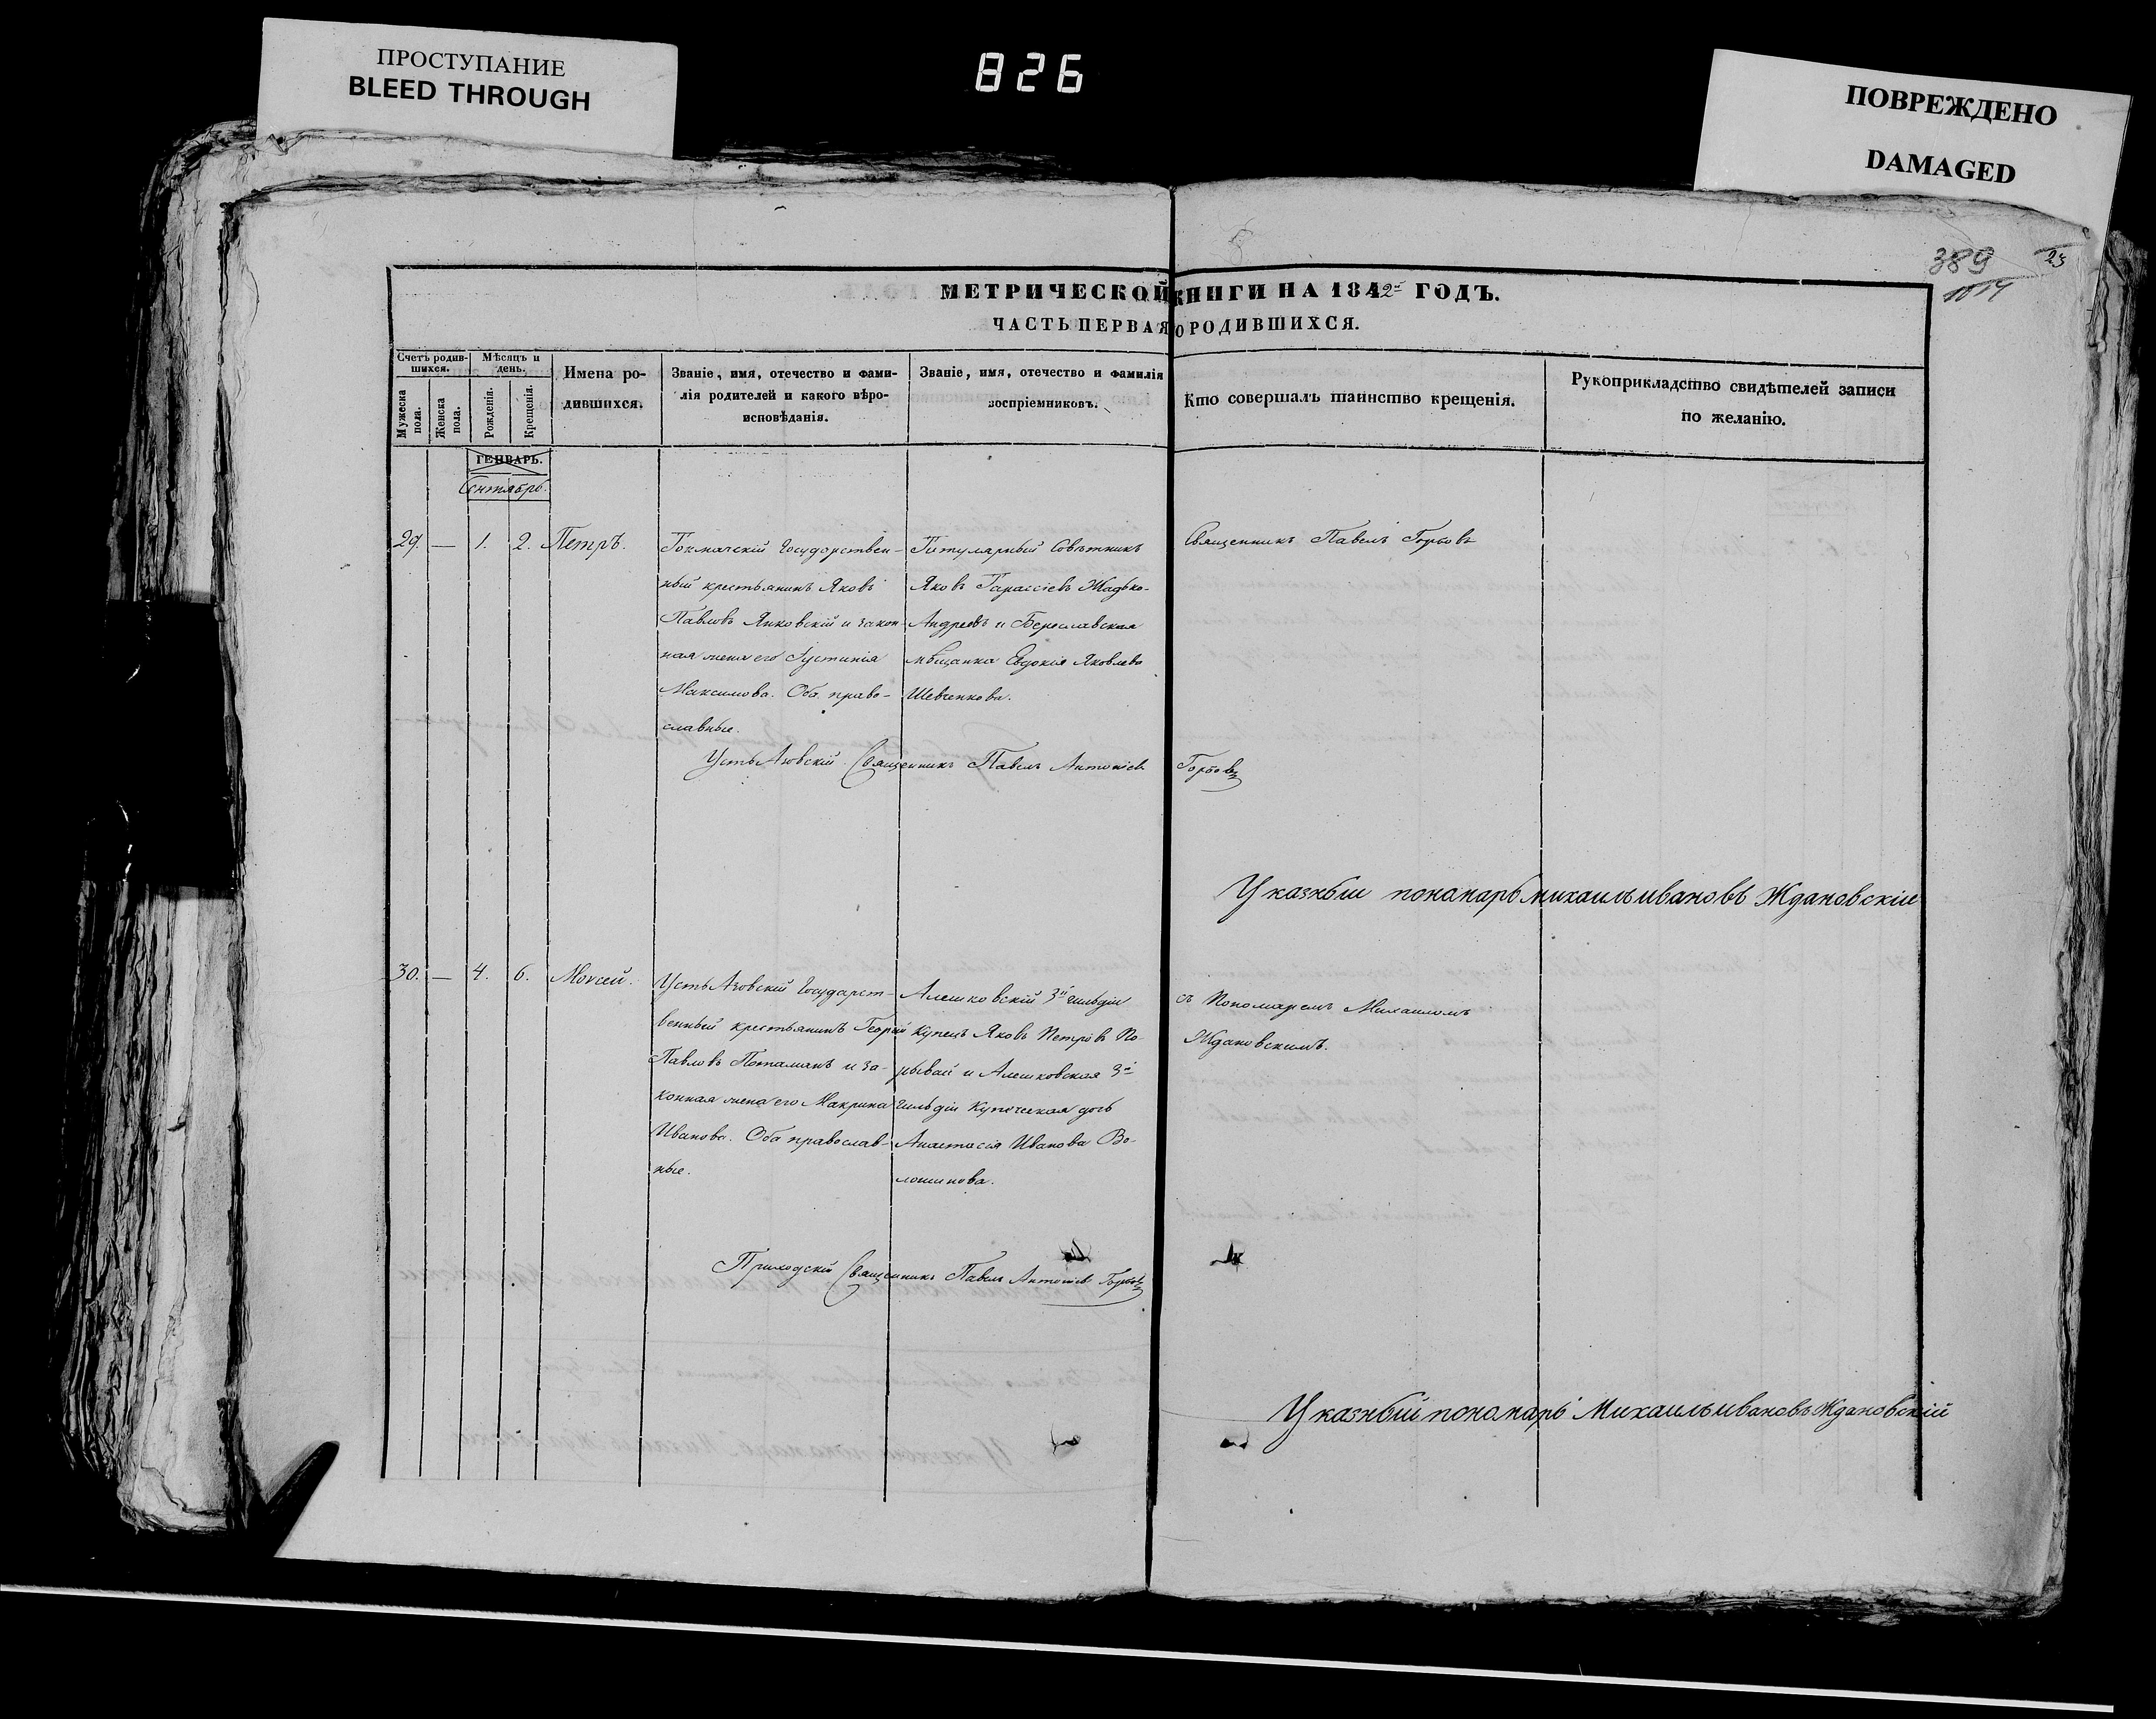 ПРОСТУПАНИЕ
BLEED THROUGH
826
ПОВРЕЖДЕНО
DAMAGED
389
23
МЕТРИЧЕСКОЙ КНИГИ НА 1842й ГОДЪ.
ЧАСТЬ ПЕРВАЯ О РОДИВШИХСЯ.
Счетъ родив-
шихся.
Мужеска пола.
Женска пола.
Мѣсяцъ и
день.
Рожденія.
Крещенія.
Имена ро-
дившихся.
Званіе, имя, отечество и фами-
лія родителей и какого вѣро-
исповѣданія.
Званіе, имя, отечество и фамилія
воспріемниковъ.
Кто совершалъ таинство крещенія.
Рукоприкладство свидѣтелей записи
по желанію.
ГЕНВАРЬ.
Сентябрь.
29. — 1. 2. Петръ.
Токмачскій Государствен-
ный крестьянинъ Яковъ
Павловъ Янковскій и закон-
ная жена его Іустинія
Максимова. Оба право-
славные.
Титулярный Совѣтникъ
Яковъ Тарасіевъ Жадько-
Андреевъ и Бериславская
мѣщанка Евдокія Яковлева
Шевченкова.
Священникъ Павелъ Горбовъ
Усть Азовскій Священникъ Павелъ Антоніевъ Горбовъ
Указныи пономарь михаилъ ивановъ Ждановскіи
30. — 4. 6. Моѵсей.
Усть Азовскій Государст-
венный крестьянинъ Георгій
Павловъ Потаманъ и за-
конная жена его Макрина
Иванова. Оба православ-
ные.
Алешковскій 3й гильдіи
Купецъ Яковъ Петровъ По-
рывай и Алешковская 3й
гильдіи Купеческая дочь
Анастасія Иванова Во-
лошинова.
съ Пономаремъ Михаиломъ
Ждановскимъ.
Приходскій Священникъ Павелъ Антоніевъ Горбовъ
Указный пономарь Михаилъ ивановъ Ждановскій